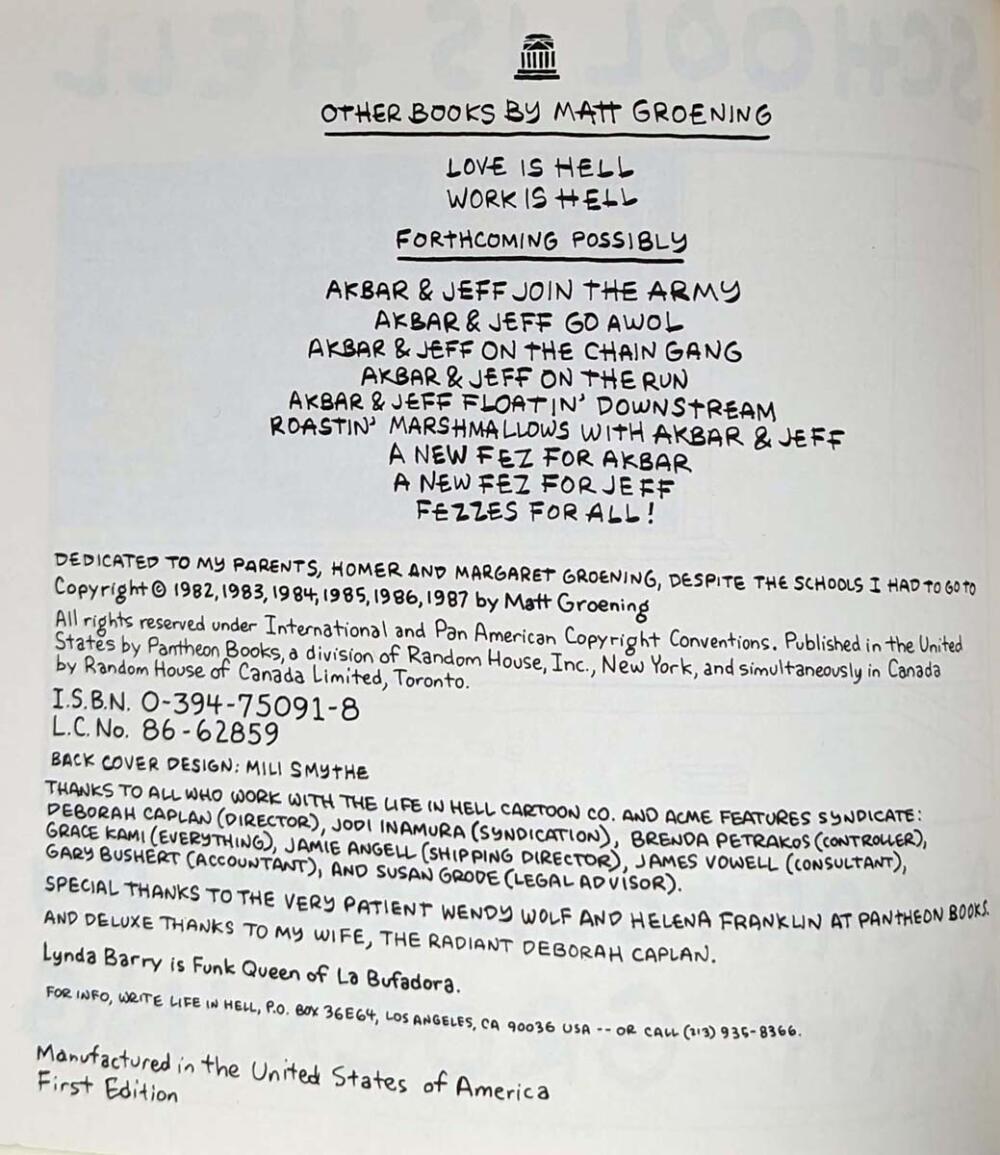 OTHER BOOKS BY MATT GROENING
LOVE IS HELL
WORK IS HELL
FORTHCOMING POSSIBLY
AKBAR & JEFF JOIN THE ARMY
AKBAR & JEFF GO AWOL
AKBAR & JEFF ON THE CHAIN GANG
AKBAR & JEFF ON THE RUN
AKBAR & JEFF FLOATIN' DOWNSTREAM
ROASTIN' MARSHMALLOWS WITH AKBAR & JEFF
A NEW FEZ FOR AKBAR
A NEW FEZ FOR JEFF
FEZZES FOR ALL!
DEDICATED TO MY PARENTS, HOMER AND MARGARET GROENING, DESPITE THE SCHOOLS I HAD TO GO TO
Copyright © 1982, 1983, 1984, 1985, 1986, 1987 by Matt Groening
All rights reserved under International and Pan American Copyright Conventions. Published in the United
States by Pantheon Books, a division of Random House, Inc., New York, and simultaneously in Canada
by Random House of Canada Limited, Toronto.
I.S.B.N. 0-394-75091-8
L.C. No. 86-62859
BACK COVER DESIGN: MILI SMYTHE
THANKS TO ALL WHO WORK WITH THE LIFE IN HELL CARTOON CO. AND ACME FEATURES SYNDICATE:
DEBORAH CAPLAN (DIRECTOR), JODI INAMURA (SYNDICATION), BRENDA PETRAKOS (CONTROLLER),
GRACE KAMI (EVERYTHING), JAMIE ANGELL (SHIPPING DIRECTOR), JAMES VOWELL (CONSULTANT),
GARY BUSHERT (ACCOUNTANT), AND SUSAN GRODE (LEGAL ADVISOR).
SPECIAL THANKS TO THE VERY PATIENT WENDY WOLF AND HELENA FRANKLIN AT PANTHEON BOOKS.
AND DELUXE THANKS TO MY WIFE, THE RADIANT DEBORAH CAPLAN.
Lynda Barry is Funk Queen of La Bufadora.
FOR INFO, WRITE LIFE IN HELL, P.O. BOX 36E64, LOS ANGELES, CA 90036 USA -- OR CALL (213) 935-8366.
Manufactured in the United States of America
First Edition